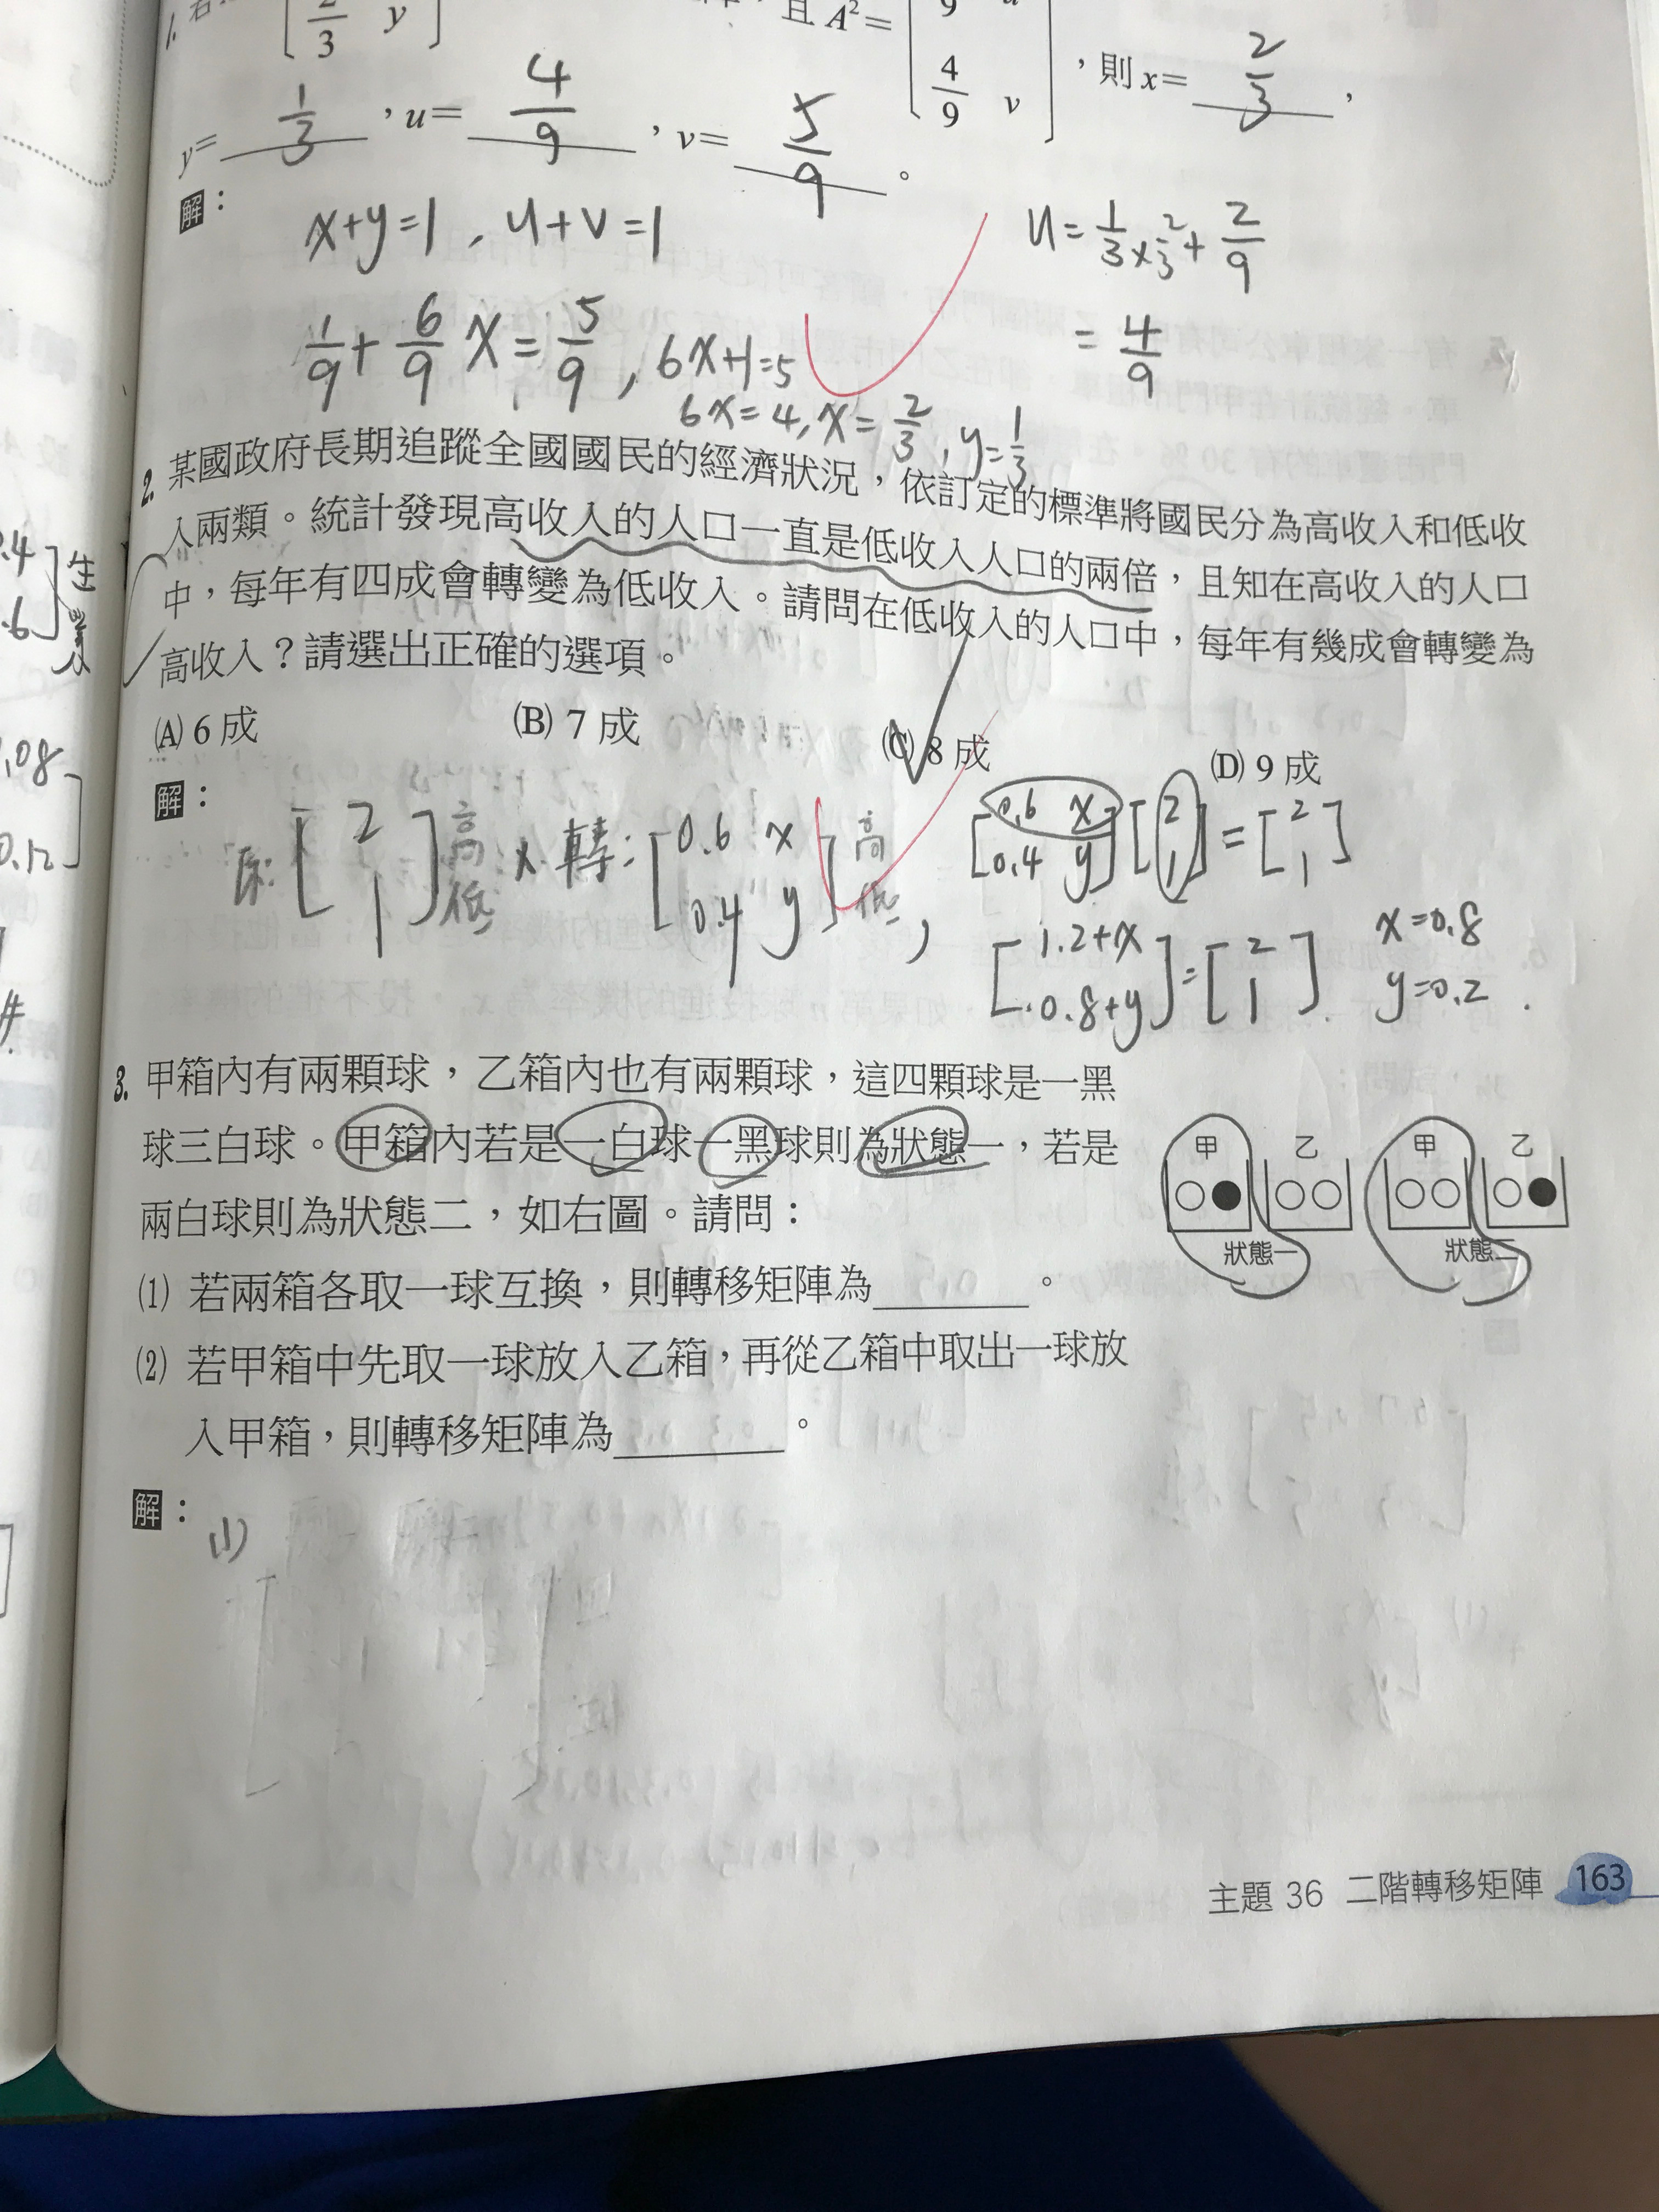 1.
2/3 y
，且 A²=
9
4/9 v
，則 x= 2/3 ，
y= 1/3 ，u= 4/9 ，v= 5/9 。
解：
x+y=1 , u+v=1
u= 1/3 × 2/3 + 2/9
= 4/9
1/9 + 6/9 x = 5/9 , 6x+1=5
6x=4, x= 2/3 , y= 1/3
2. 某國政府長期追蹤全國國民的經濟狀況，依訂定的標準將國民分為高收入和低收
入兩類。統計發現高收入的人口一直是低收入人口的兩倍，且知在高收入的人口
中，每年有四成會轉變為低收入。請問在低收入的人口中，每年有幾成會轉變為
高收入？請選出正確的選項。
(A) 6 成 (B) 7 成 (C) 8 成 (D) 9 成
解：
原: [2 1] 高 低 × 轉: [0.6 x 0.4 y] 高 低 ,
[0.6 x 0.4 y] [2 1] = [2 1]
[1.2+x 0.8+y] = [2 1]
x=0.8
y=0.2
3. 甲箱內有兩顆球，乙箱內也有兩顆球，這四顆球是一黑
球三白球。甲箱內若是一白球一黑球則為狀態一，若是
兩白球則為狀態二，如右圖。請問：
甲 乙 甲 乙
狀態一 狀態二
(1) 若兩箱各取一球互換，則轉移矩陣為 。
(2) 若甲箱中先取一球放入乙箱，再從乙箱中取出一球放
入甲箱，則轉移矩陣為 。
解：
(1)
主題 36 二階轉移矩陣 163
.4
.6
.08
0.12